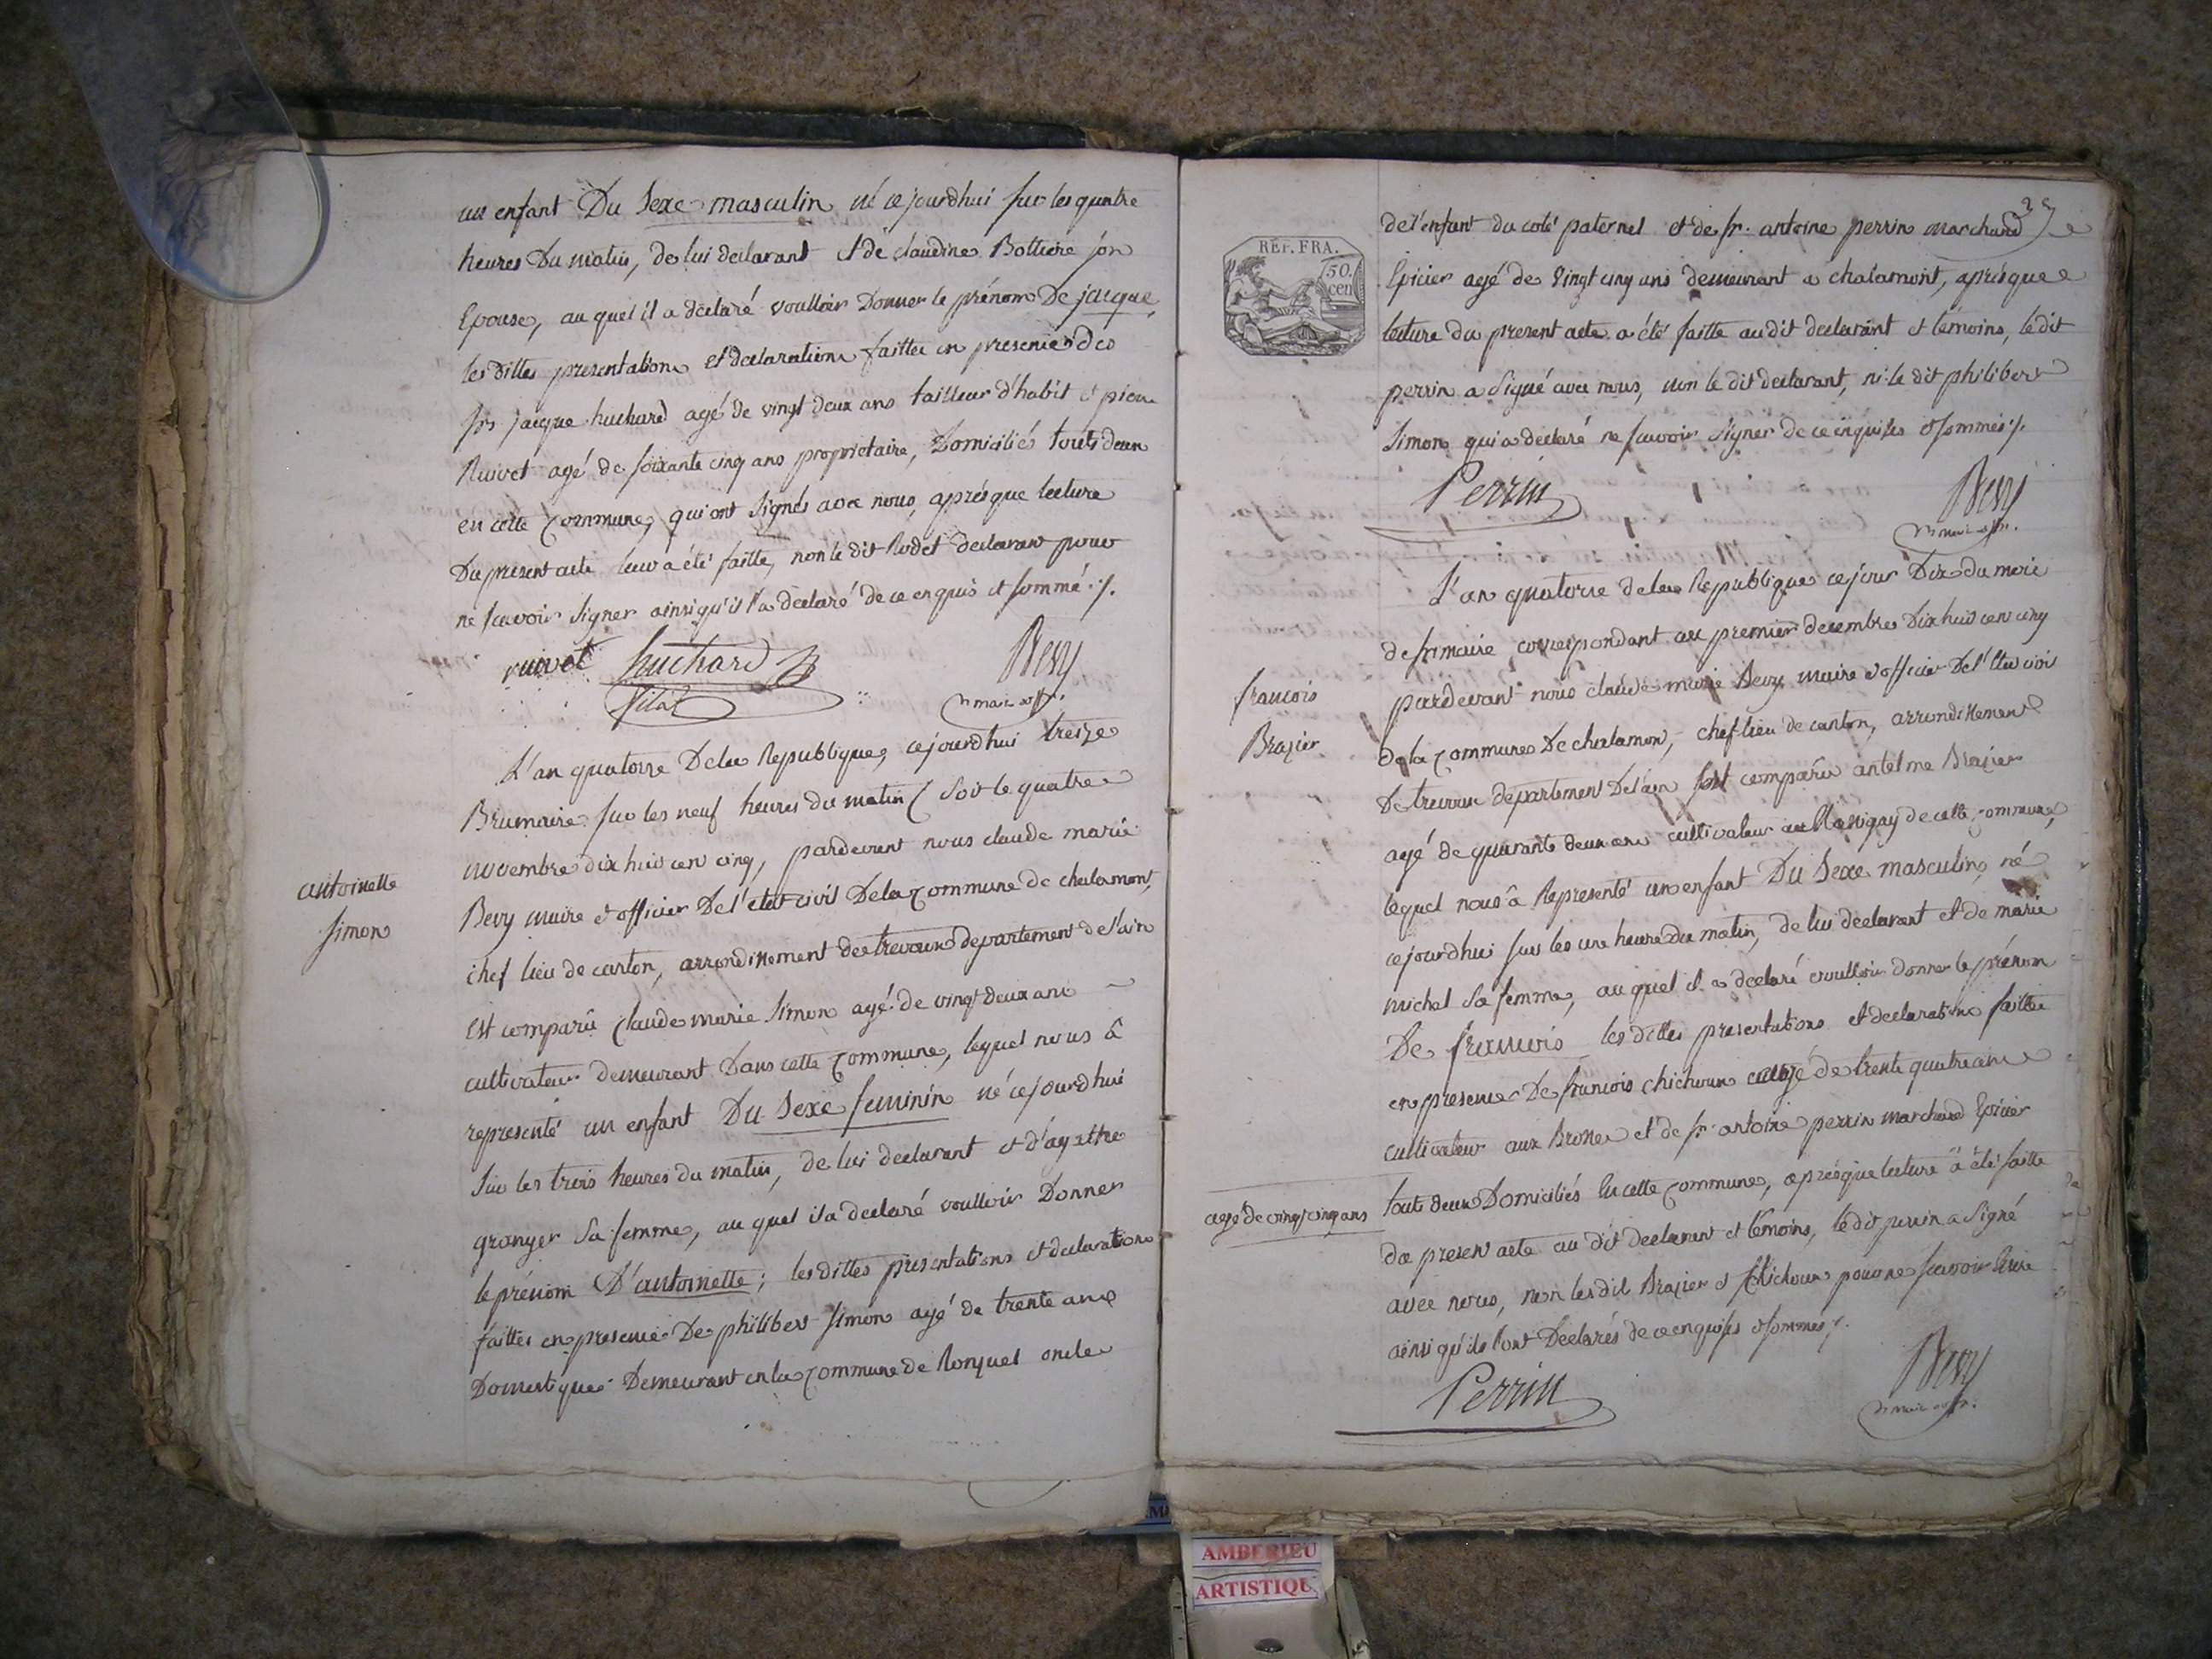 un enfant Du Sexe masculin né cejourdhui sur les quatre
heures Du matin, de lui declarant et de claudine Bottiere son
Epouse, au quel il a déclaré voulloir Donner le prénom De jacque,
les dittes presentation et declaration faittes en presence des
srs jacque huchard agé de vingt deux ans tailleur d'habit et pierre
Ruivet agé de soixante cinq ans proprietaire, Domiciliés touts deux
en cette Commune, qui ont signés avec nous, aprés que lecture
Du present acte leur a été faitte, non le dit Rodet declarant pour
ne scavoir signer ainsi qu'il l'a déclaré de ce enquis et sommé ./.
ruivet huchard
Bevy
maire
L'an quatorze De la Republique, cejourdhui treize
Brumaire sur les neuf heures du matin (soit le quatre
novembre dix huit cent cinq, pardevant nous claude marie
antoinette
simon
Bevy maire et officier De l'état civil De la Commune de chalamont,
chef lieu de canton, arrondissement de trevoux departement de l'ain
Est comparu Claude marie Simon agé de vingt deux ans
cultivateur demeurant Dans cette Commune, lequel nous â
representé un enfant Du Sexe feminin né cejourdhui
sur les trois heures du matin, de lui declarant et d'agathe
granger Sa femme, au quel il a declaré voulloir Donner
le prénom D'antoinette; les dittes presentations et declarations
faittes en presence De philibert Simon agé de trente ans
Domestique Demeurant en la Commune de Ronzuel oncle
25
de l'enfant du coté paternel et de sr. antoine perrin marchand
REP. FRA.
50.
cen
Epicier agé de vingt cinq ans demeurant a chalamont, aprés que
lecture du present acte a été faitte audit declarant et témoins, le dit
perrin a signé avec nous, non le dit declarant, ni le dit philibert
Simon qui a declaré ne scavoir signer de ce enquises et sommés ./.
Perrin
Bevy
maire
L'an quatorze de la Republique ce jour Dix du mois
de frimaire correspondant au premier decembre Dix huit cent cinq
francois
Brazier
pardevant nous claude marie Bevy maire et officier De l'état civil
de la Commune De chalamont, chef lieu de canton, arrondissement
De trevoux departement De l'ain Est comparu antelme Brazier
agé de quarante deux ans cultivateur au de cette Commune,
lequel nous â Representé un enfant Du Sexe masculin, né
cejourdhui sur les une heure du matin, de lui declarant et de marie
michel Sa femme, au quel il a declaré voulloir donner le prénom
De francois les dittes presentations et declarations faittes
en presence De francois chichoux agé de trente quatre ans
cultivateur aux Brosses et de sr. antoine perrin marchand Epicier
agé de vingt cinq ans
touts deux Domiciliés En cette Commune, aprés que lecture â été faitte
du present acte au dit declarant et témoins, le dit perrin a signé
avec nous, non les dit Brazier et chichoux pour ne scavoir Ecrire
ainsi qu'ils l'ont Declarés de ce enquises et sommés ./.
Perrin
Bevy
maire
AMBERIEU
ARTISTIQU